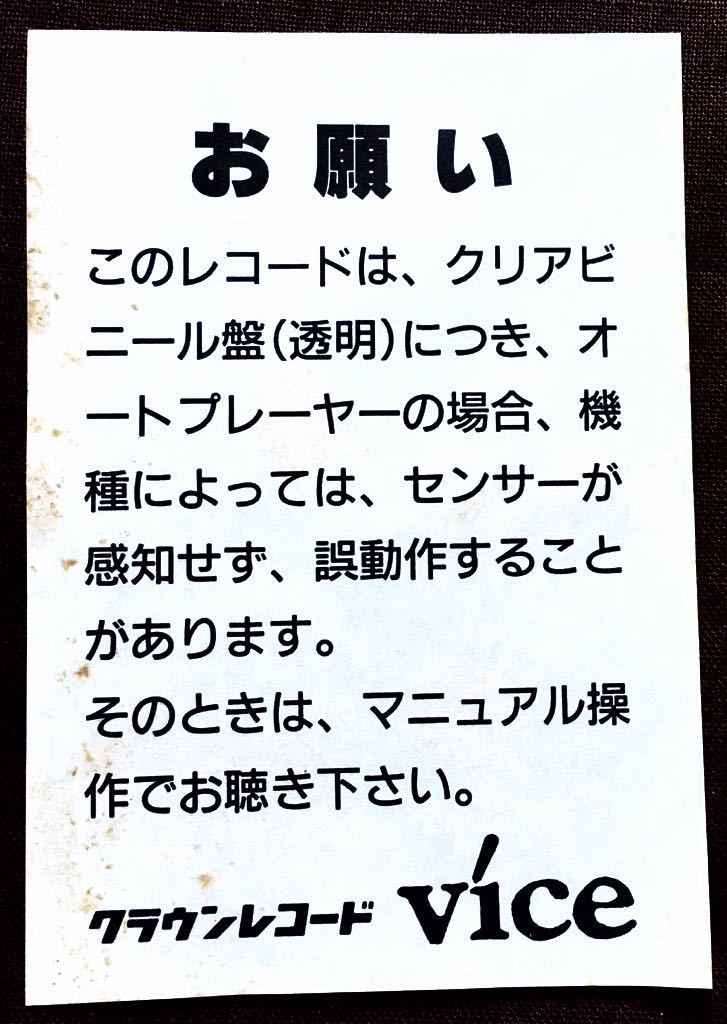 お願い
このレコードは、クリアビ
ニール盤(透明)につき、オ
ートプレーヤーの場合、機
種によっては、センサーが
感知せず、誤動作すること
があります。
そのときは、マニュアル操
作でお聴き下さい。
クラウンレコード vice